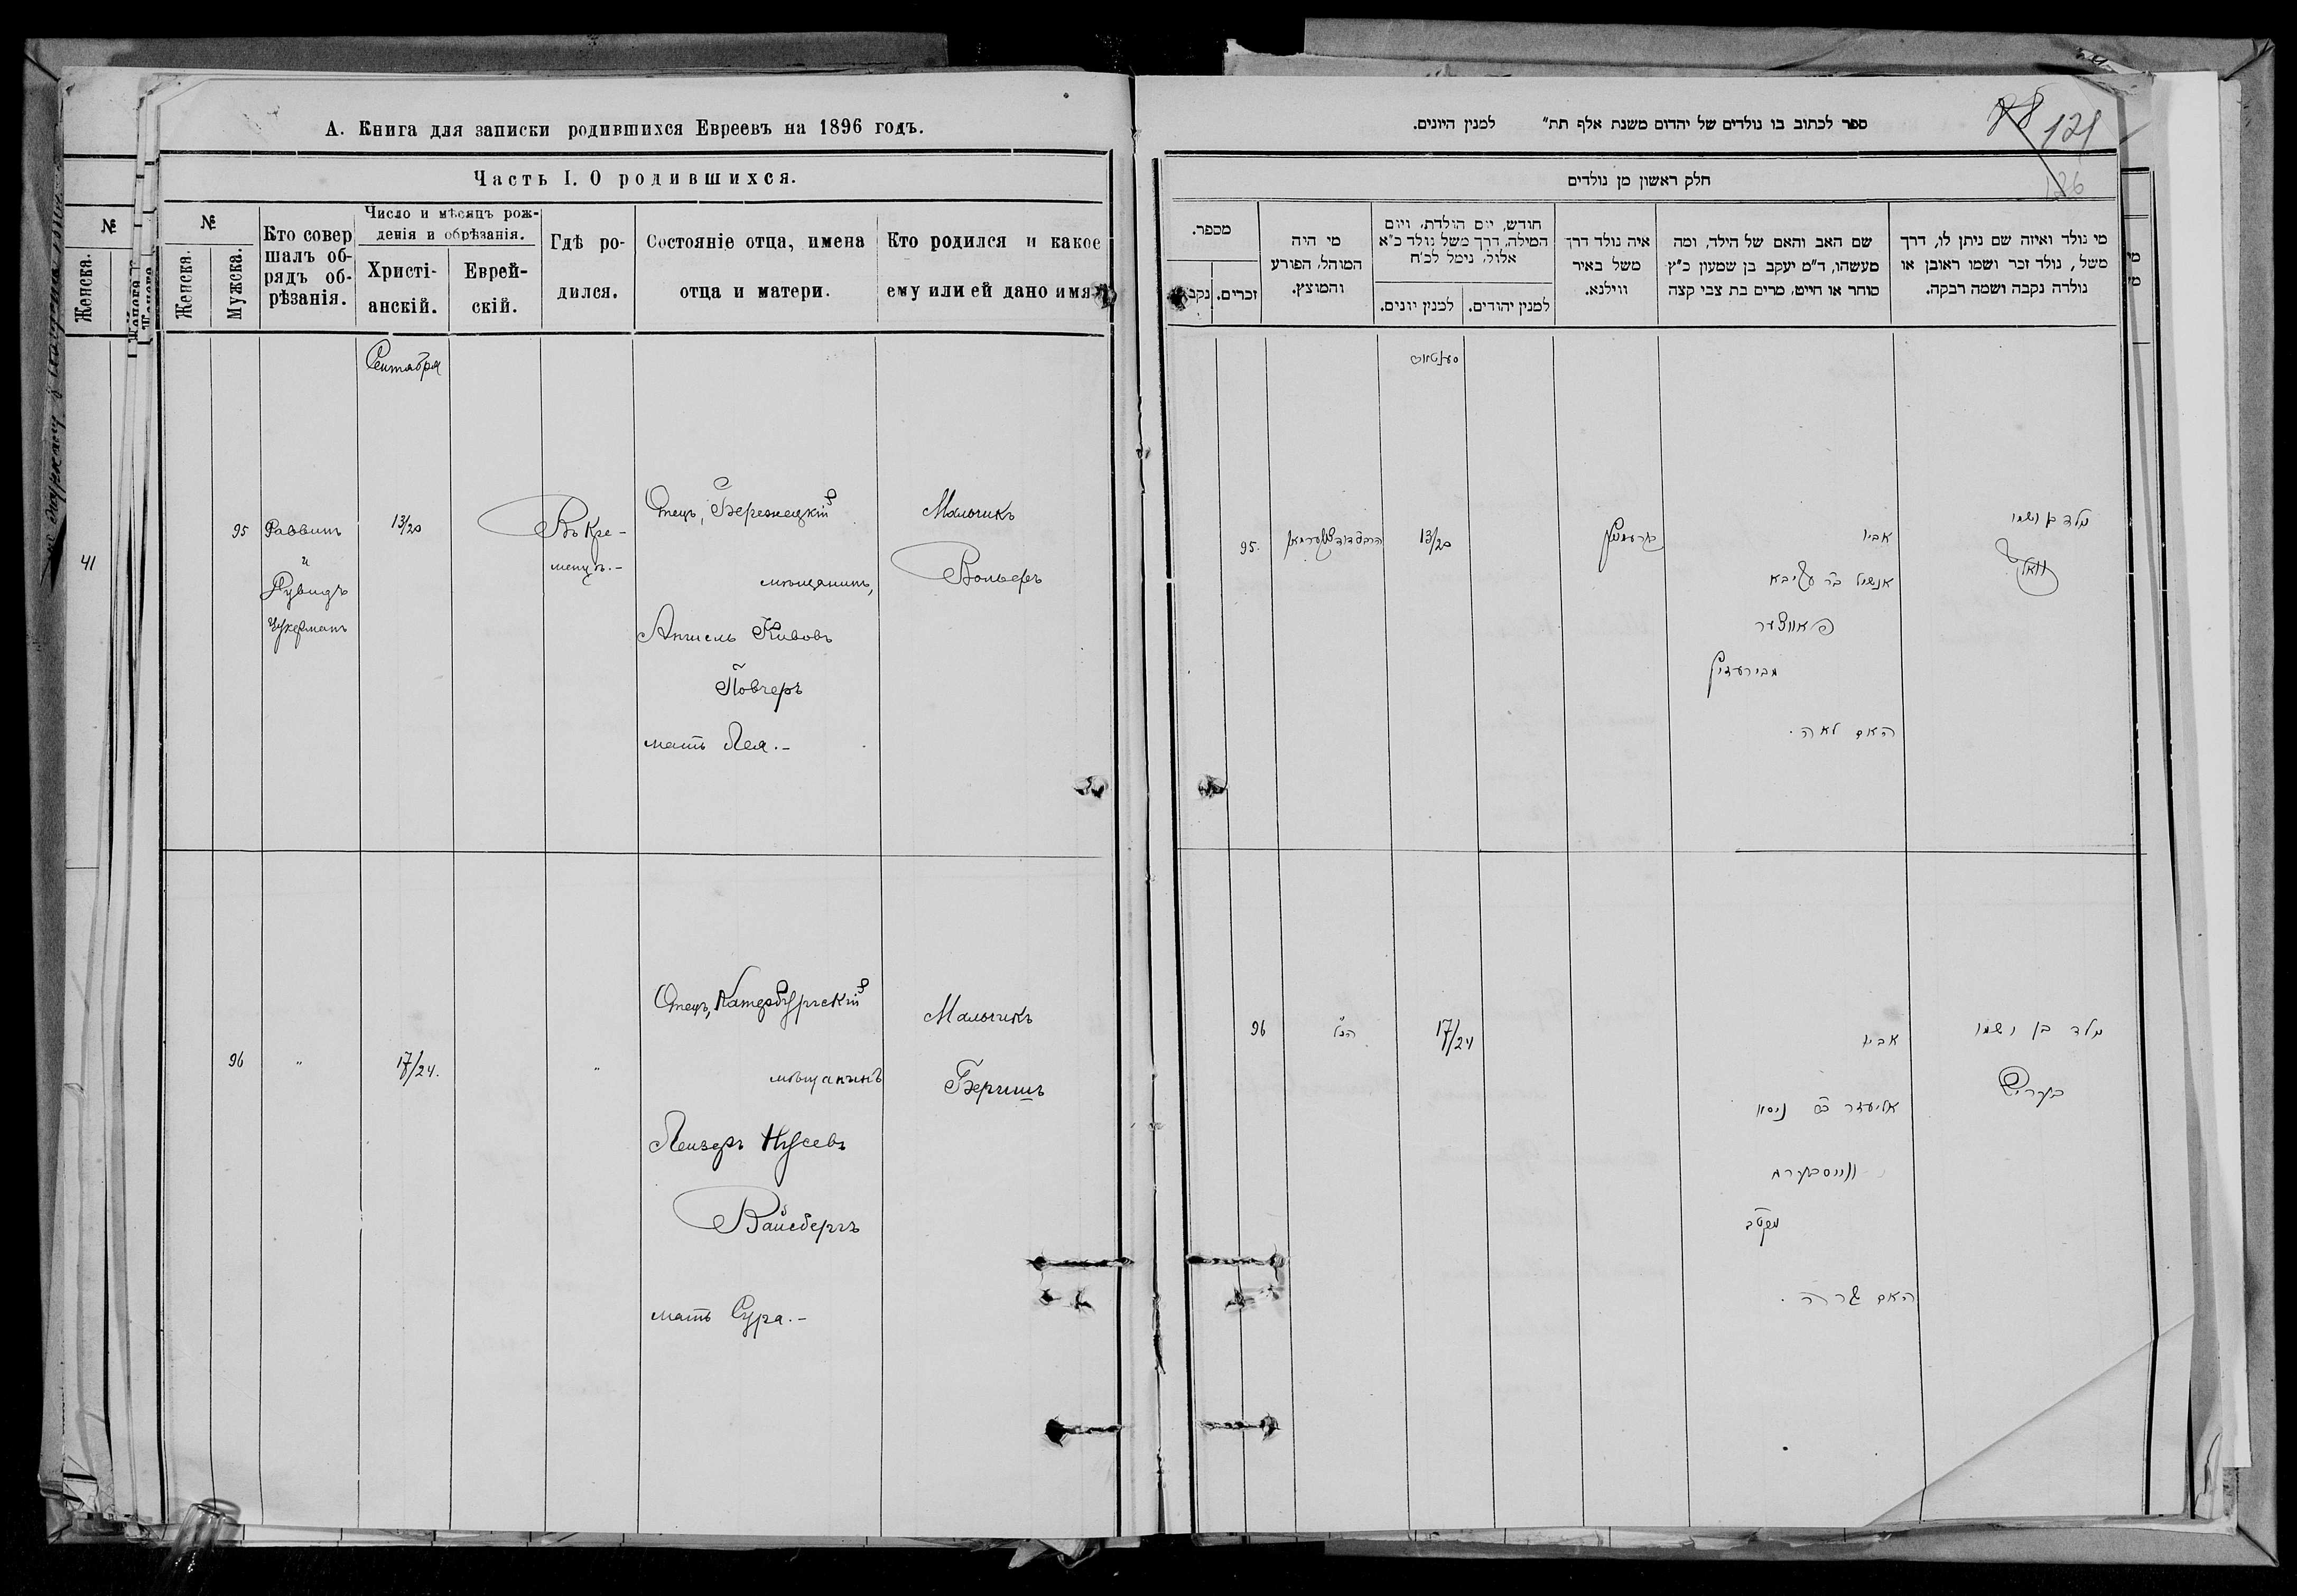 А. Книга для записки родившихся Евреевъ на 1896 годъ.
Часть I. О родившихся.
№
Женска.
Мужска.
Кто совер
шалъ об-
рядъ об-
рѣзанія.
Число и мѣсяцъ рож-
денія и обрѣзанія.
Христі-
анскій.
Еврей-
скій.
Гдѣ ро-
дился.
Состояніе отца, имена
отца и матери.
Кто родился и какое
ему или ей дано имя
Сентября
95
Раввинъ
и
Дувидъ
Цукерманъ
13/20
Въ Кре-
менцѣ.-
Отецъ, Бережецкій
мѣщанинъ,
Аншель Кивовъ
Повчеръ
мать Лея.-
Мальчикъ
Вольфъ
96
"
17/24.
"
Отецъ, Катербургскій
мѣщанинъ
Лейзеръ Нусевъ
Вайсбергъ
мать Сура.-
Мальчикъ
Беришъ
№
Женска.
41
ספר לכתוב בו נולדים של יהדום משנת אלף תת״ למנין היונים.
121
126
חלק ראשון מן נולדים
מי נולד ואיזה שם ניתן לו, דרך
משל, נולד זכר ושמו ראובן או
נולדה נקבה ושמה רבקה.
שם האב והאם של הילד, ומה
מעשהו, ד״מ יעקב בן שמעון כ״ץ
סוחר או חייט, מרים בת צבי קצה
איה נולד דרך
משל באיר
ווילנא.
חודש, יום הולדת, ויום
המילה, דרך משל נולד כ״א
אלול, נימל לכ״ח
למנין יהודים.
למנין יונים.
מי היה
המוהל, הפורע
והמוצץ.
מספר.
זכרים.
נקב
נולד בן ושמו
וואלף
אביו
אנשיל בר עקיבא
פאווצער
האם לאה.
13/20
95.
נולד בן ושמו
בעריש
אביו
אליעזר בר ניסן
ווייסבערג
האם שרה.
17/24
הנ״ל
96